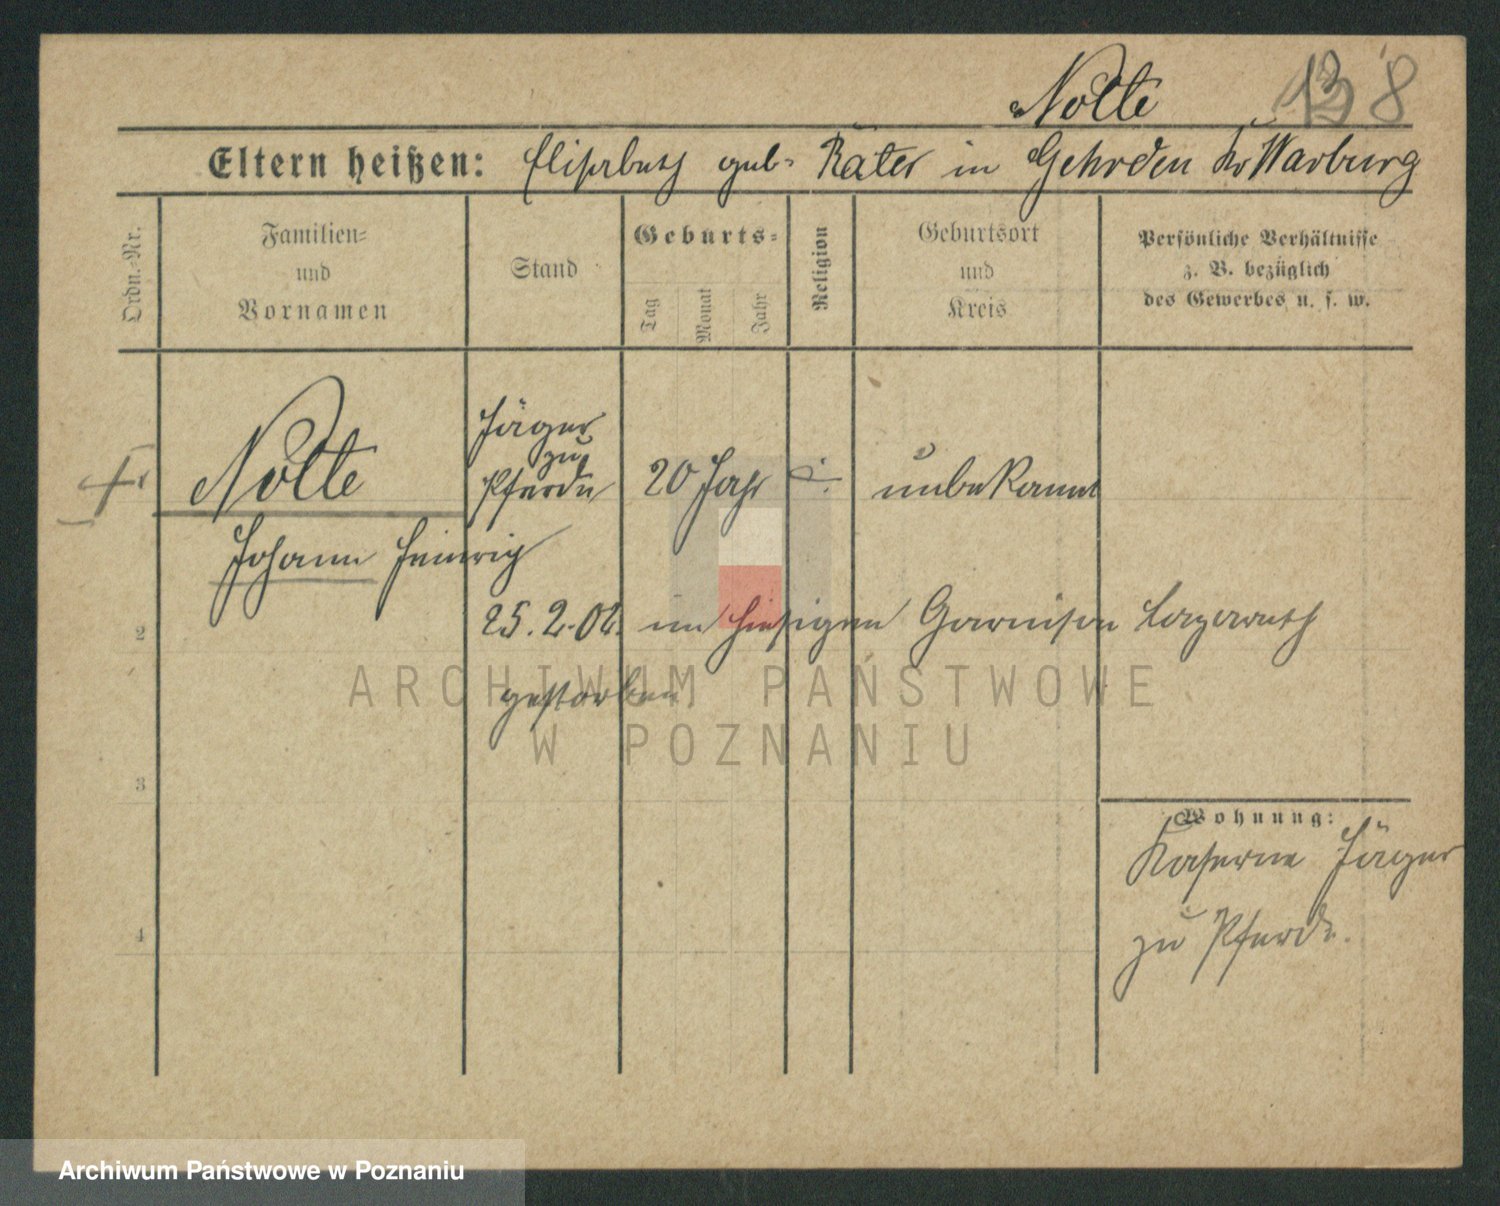 Nolte 138
Eltern heißen: Elisabeth geb. Räter in Gehrden Kr Warburg
Ordn.-Nr.
Familien-
und
Vornamen
Stand
Geburts-
Tag
Monat
Jahr
Religion
Geburtsort
und
Kreis
Persönliche Verhältnisse
z. B. bezüglich
des Gewerbes u. s. w.
Nolte
Johann Heinrich
Jäger
zu
Pferde
20 Jahr
unbekannt
2
25.2.02. im hiesigen Garnison Lazareth
gestorben
3
4
Wohnung:
Kaserne Jäger
zu Pferde.
ARCHIWUM PAŃSTWOWE
W POZNANIU
Archiwum Państwowe w Poznaniu